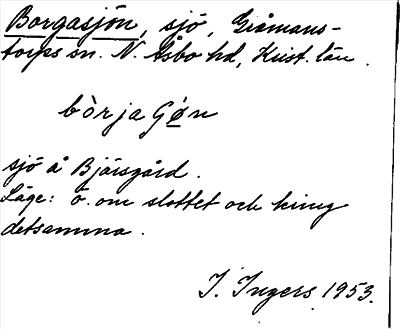 Borgasjön, sjö, Gråmans-
torps sn. N. Åsbo hd, Krist. län.
bòrjaGø̲n
sjö å Bjärsgård.
Läge: ö. om slottet och kring
detsamma.
I. Ingers 1953.